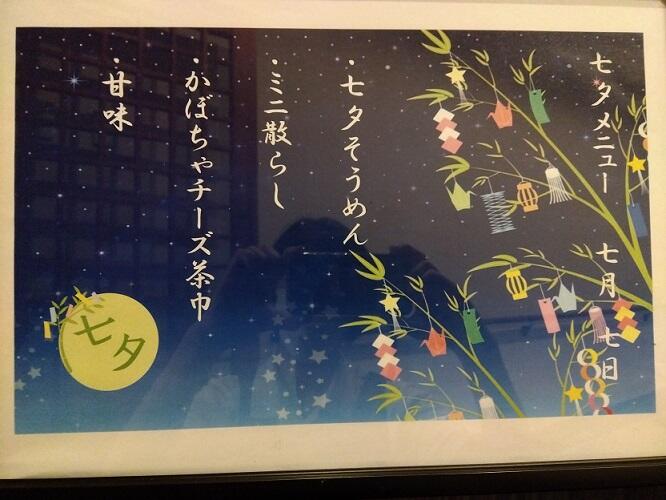 七夕メニュー 七月七日
・七夕そうめん
・ミニ散らし
・かぼちゃチーズ茶巾
・甘味
七夕